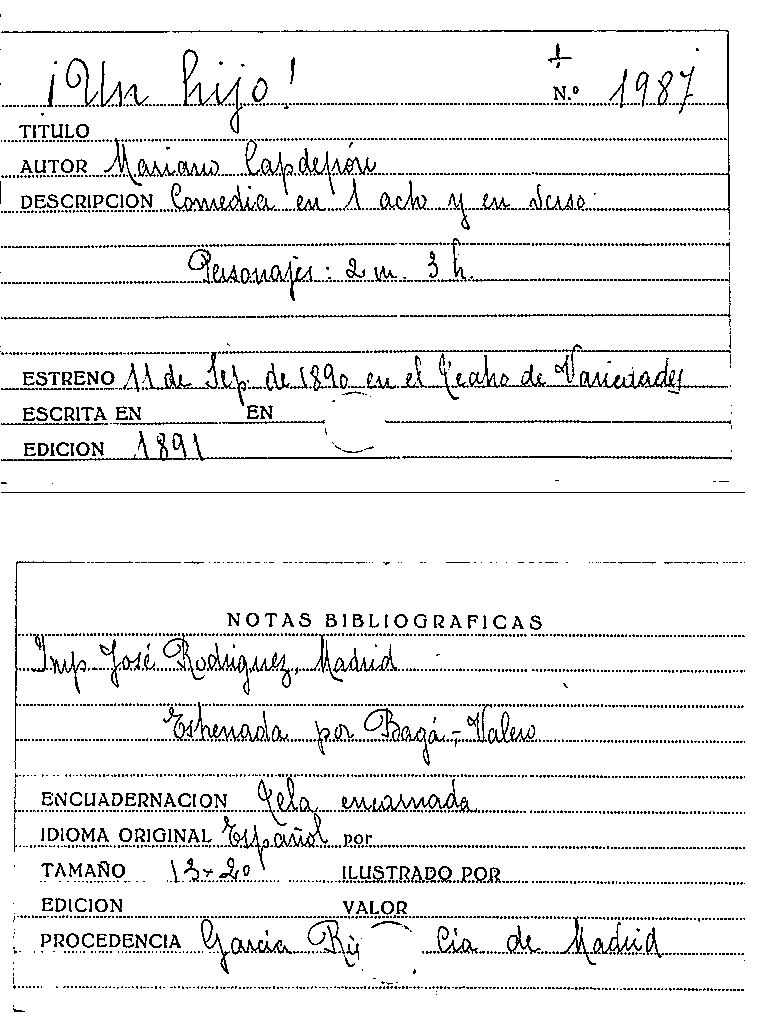 ¡Un hijo!
N.º 1987
TITULO
AUTOR Mariano Capdepón
DESCRIPCION Comedia en 1 acto y en verso.
Personajes: 2 m. 3 h.
ESTRENO 11 de Sep. de 1890 en el Teatro de Variedades
ESCRITA EN EN
EDICION 1891
NOTAS BIBLIOGRAFICAS
Imp. José Rodriguez, Madrid
Estrenada por Bagá-Valero
ENCUADERNACION Tela encarnada
IDIOMA ORIGINAL Español por
TAMAÑO 13-20 ILUSTRADO POR
EDICION VALOR
PROCEDENCIA García de Madrid